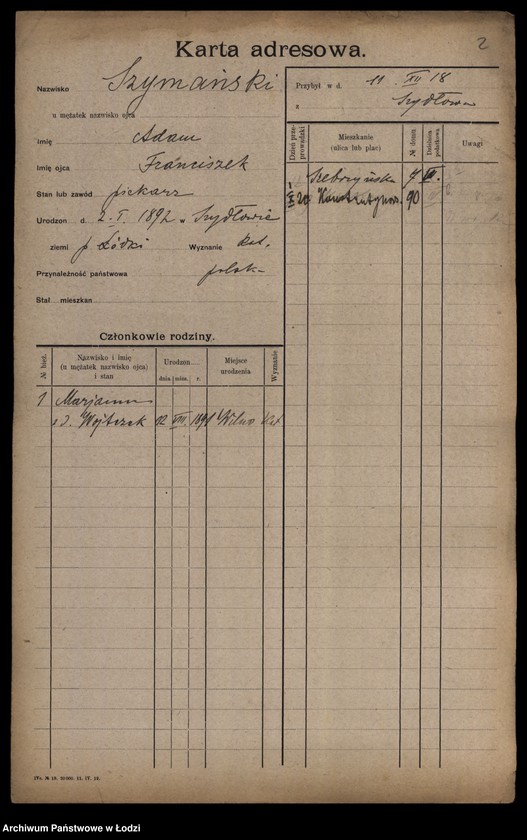 2
Karta adresowa.
Nazwisko Szymański
u mężatek nazwisko ojca
imię Adam
imię ojca Franciszek
Stan lub zawód piekarz
Urodzon d. 2. I. 1892 w Szydłowie
ziemi p Łódzki Wyznanie kat.
Przynależność państwowa polsk
Stał mieszkan
Przybył w d. 11 XII 18
z Szydłowa
Dzień przeprowadzki
Mieszkanie
(ulica lub plac)
№ domu
Dzielnica podatkowa
Uwagi
Srebrzyńska 7 III.
Konstantynow. 90
Członkowie rodziny.
№ bież.
Nazwisko i imię
(u mężatek nazwisko ojca)
i stan
Urodzon
dnia mies. r.
Miejsce
urodzenia
Wyznanie
1 Marjanna
z d. Wojtczak 12 VIII Wilno Kat
ITo. № 18. 20 000. 11. IV. 18.
Archiwum Państwowe w Łodzi